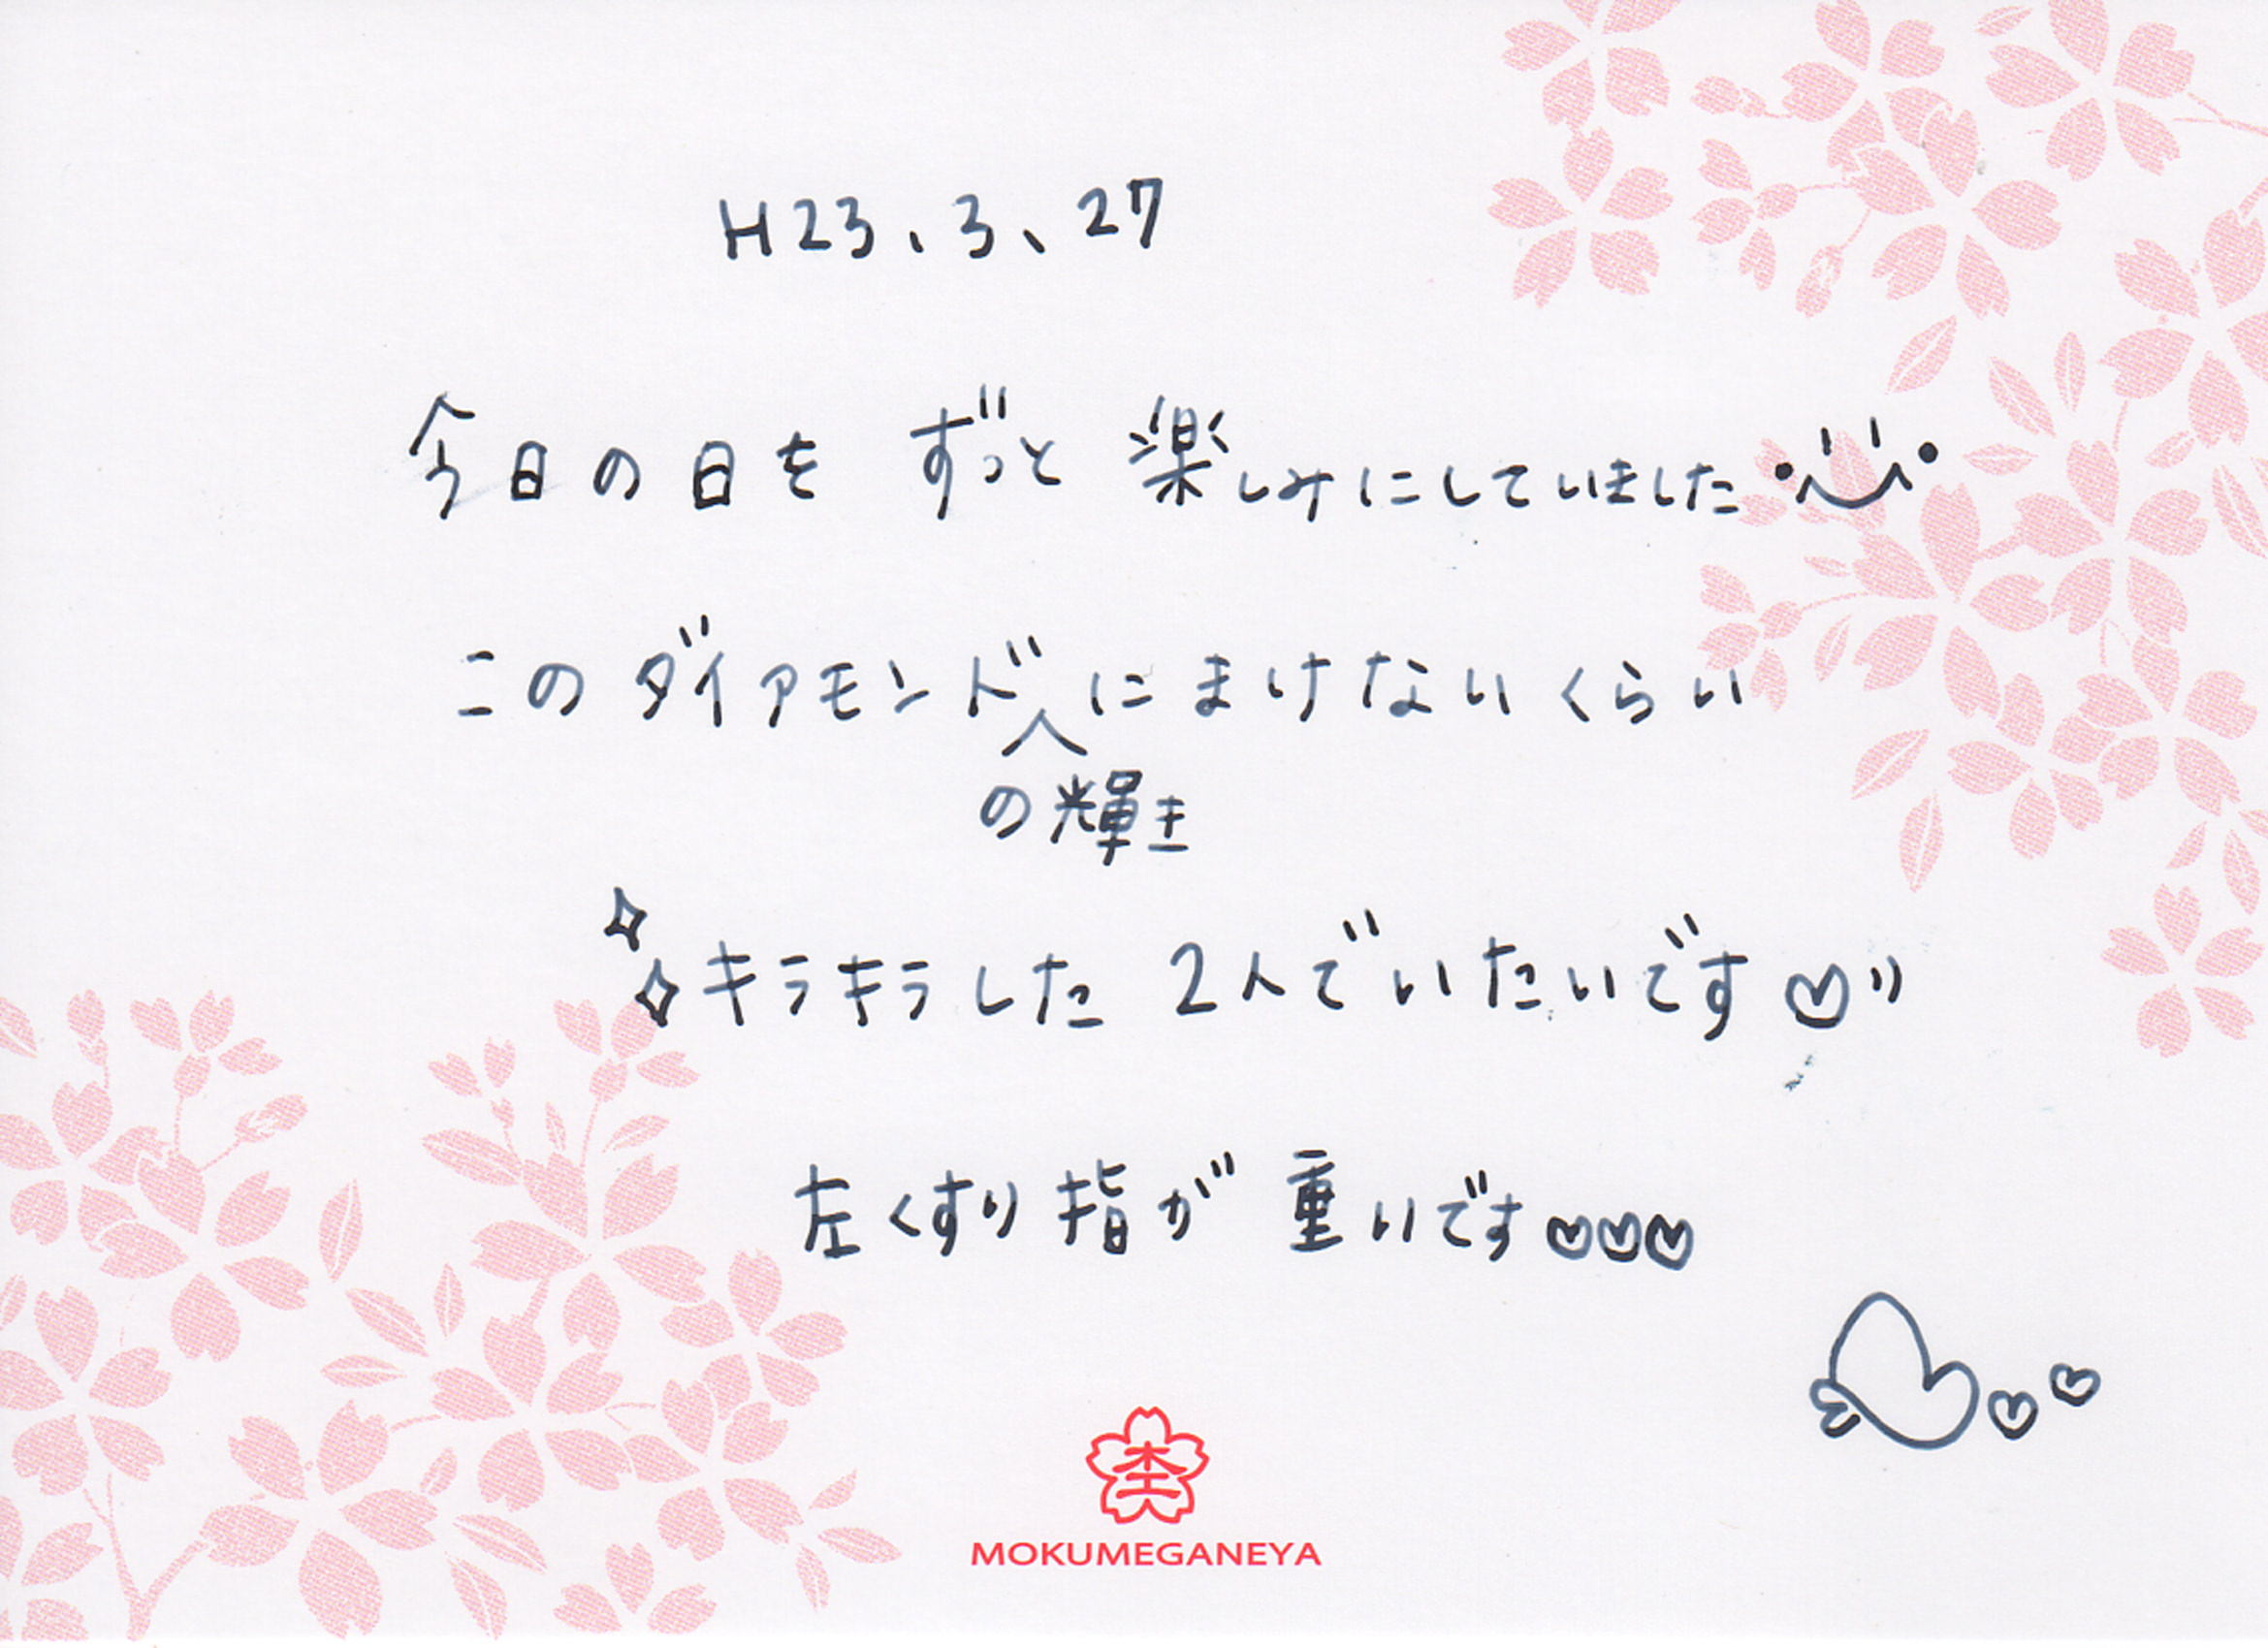 H23、3、27
今日の日を ずっと 楽しみにしていました
このダイアモンドにまけないくらい
の輝き
キラキラした 2人でいたいです♡
左くすり指が 重いです♡♡♡
杢
MOKUMEGANEYA